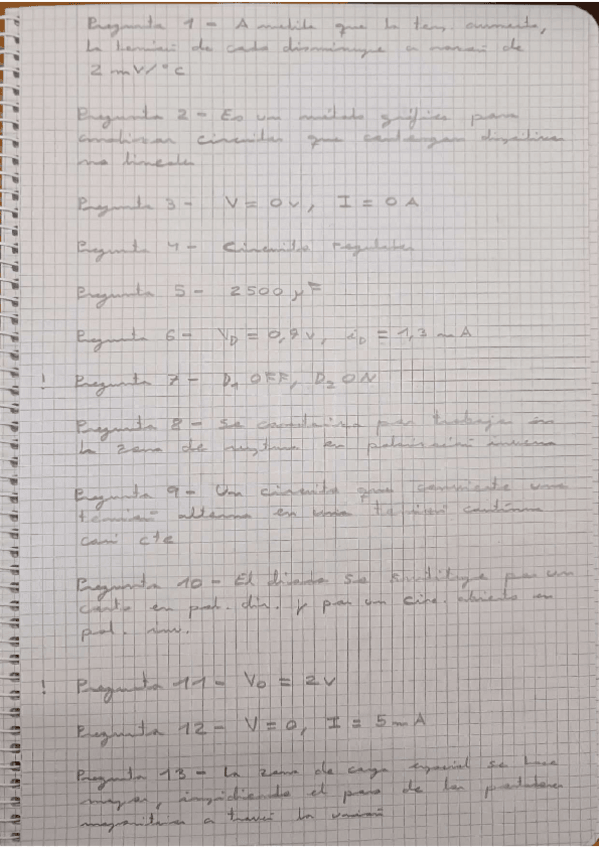 Pregunta 1 - A medida que la tem. aumenta,
la tensión de cada disminuye a razón de
2 mV/°C
Pregunta 2 - Es un método gráfico para
analizar circuitos que contengan dispositivos
no lineales
Pregunta 3 - V = 0 v, I = 0 A
Pregunta 4 - Circuito regulador
Pregunta 5 - 2500 μF
Pregunta 6 - V_D = 0,9 v, i_D = 1,3 mA
! Pregunta 7 - D1 OFF, D2 ON
Pregunta 8 - Se caracteriza por trabajar en
la zona de ruptura en polarización inversa
Pregunta 9 - Un circuito que convierte una
tensión alterna en una tensión continua
casi cte
Pregunta 10 - El diodo se sustituye por un
corto en pol. dir. y por un circ. abierto en
pol. inv.
! Pregunta 11 - Vo = 2 v
Pregunta 12 - V = 0, I = 5 mA
Pregunta 13 - La zona de carga espacial se hace
mayor, impidiendo el paso de los portadores
mayoritarios a través la unión